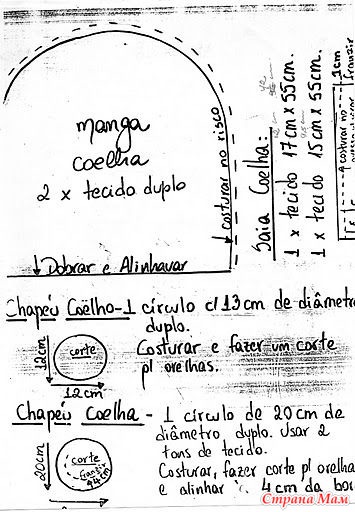 manga
coelha
2 x tecido duplo
costurar no risco
Dobrar e Alinhavar
Saia Coelha:
1 x tecido 17cm x 55cm.
1 x tecido 15cm x 55cm.
1cm
franzir
costurar no
Chapéu Coelho - 1 círculo c/ 13 cm de diâmetr
duplo.
Costurar e fazer um corte
p/ orelhas.
12cm
corte
12cm
Chapéu Coelha - 1 círculo de 20 cm de
diâmetro duplo. Usar 2
tons de tecido.
Costurar, fazer corte p/ orelha
e alinhar 4cm da bor
20cm
corte
franzir
4cm
Страна Мам